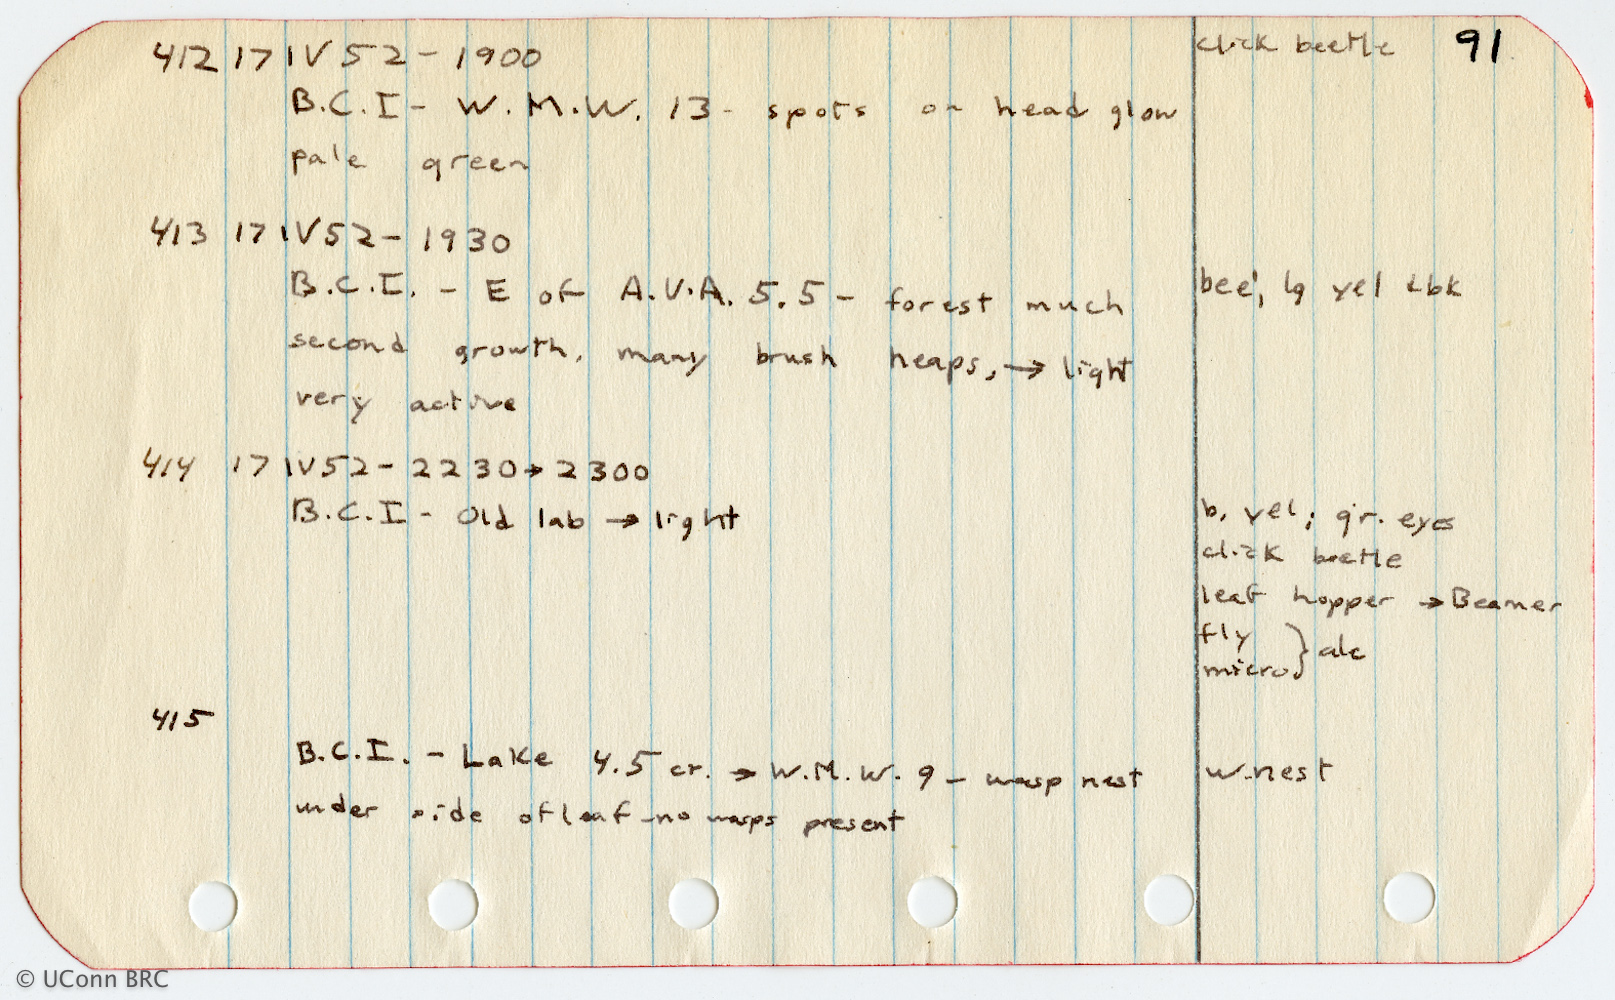 91
412 17 IV 52 - 1900 click beetle
B.C.I - W.M.W. 13 - spots on head glow
pale green
413 17 IV 52 - 1930
B.C.I. - E of A.V.A. 5.5 - forest much bee, lg yel & bk
second growth, many brush heaps, → light
very active
414 17 IV 52 - 2230 → 2300
B.C.I - Old lab → light b, yel; gr. eyes
click beetle
leaf hopper → Beamer
fly
micro } alc
415
B.C.I. - Lake 4.5 cr. → W.M.W. 9 - wasp nest w. nest
under side of leaf - no wasps present
© UConn BRC